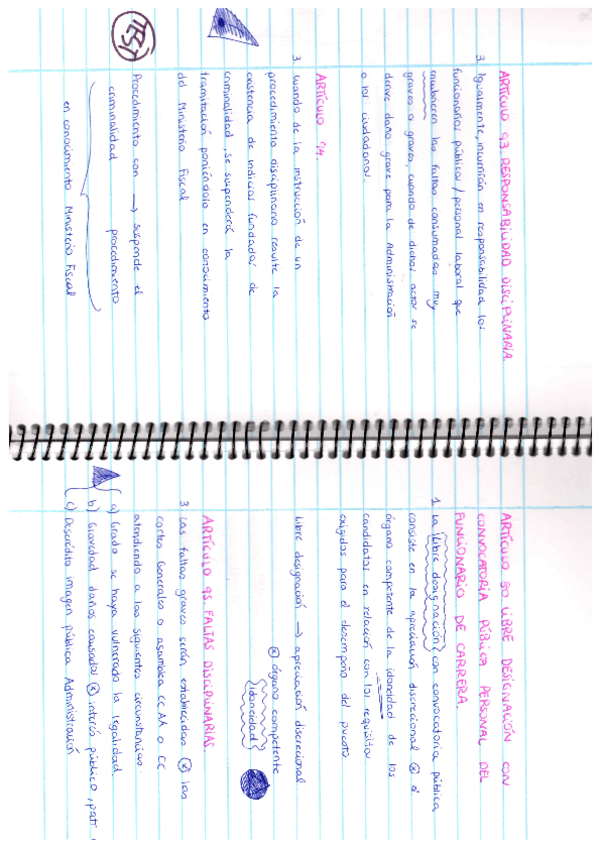 ARTÍCULO 93 RESPONSABILIDAD DISCIPLINARIA.
3. Igualmente, incurrirán en responsabilidad los
funcionarios públicos / personal laboral que
encubrieren las faltas consumadas muy
graves o graves, cuando de dichos actos se
derive daño grave para la Administración
o los ciudadanos.
ARTÍCULO 94.
3. Cuando de la instrucción de un
procedimiento disciplinario resulte la
existencia de indicios fundados de
criminalidad, se suspenderá la
tramitación poniéndolo en conocimiento
del Ministerio Fiscal
TEST
Procedimiento con → suspende el
criminalidad procedimiento
en conocimiento Ministerio Fiscal
ARTÍCULO 80 LIBRE DESIGNACIÓN CON
CONVOCATORIA PÚBLICA PERSONAL DEL
FUNCIONARIO DE CARRERA.
1. La libre designación con convocatoria pública
consiste en la apreciación discrecional x el
órgano competente de la idoneidad de los
candidatos en relación con los requisitos
exigidos para el desempeño del puesto
Libre designación → apreciación discrecional
x órgano competente
idoneidad
ARTÍCULO 95. FALTAS DISCIPLINARIAS
3. Las faltas graves serán establecidas x las
Cortes Generales o asamblea CCAA o CC
atendiendo a las siguientes circunstancias:
a) Grado se haya vulnerado la legalidad.
b) Gravedad daños causados x interés público, pat
c) Descrédito imagen pública Administración